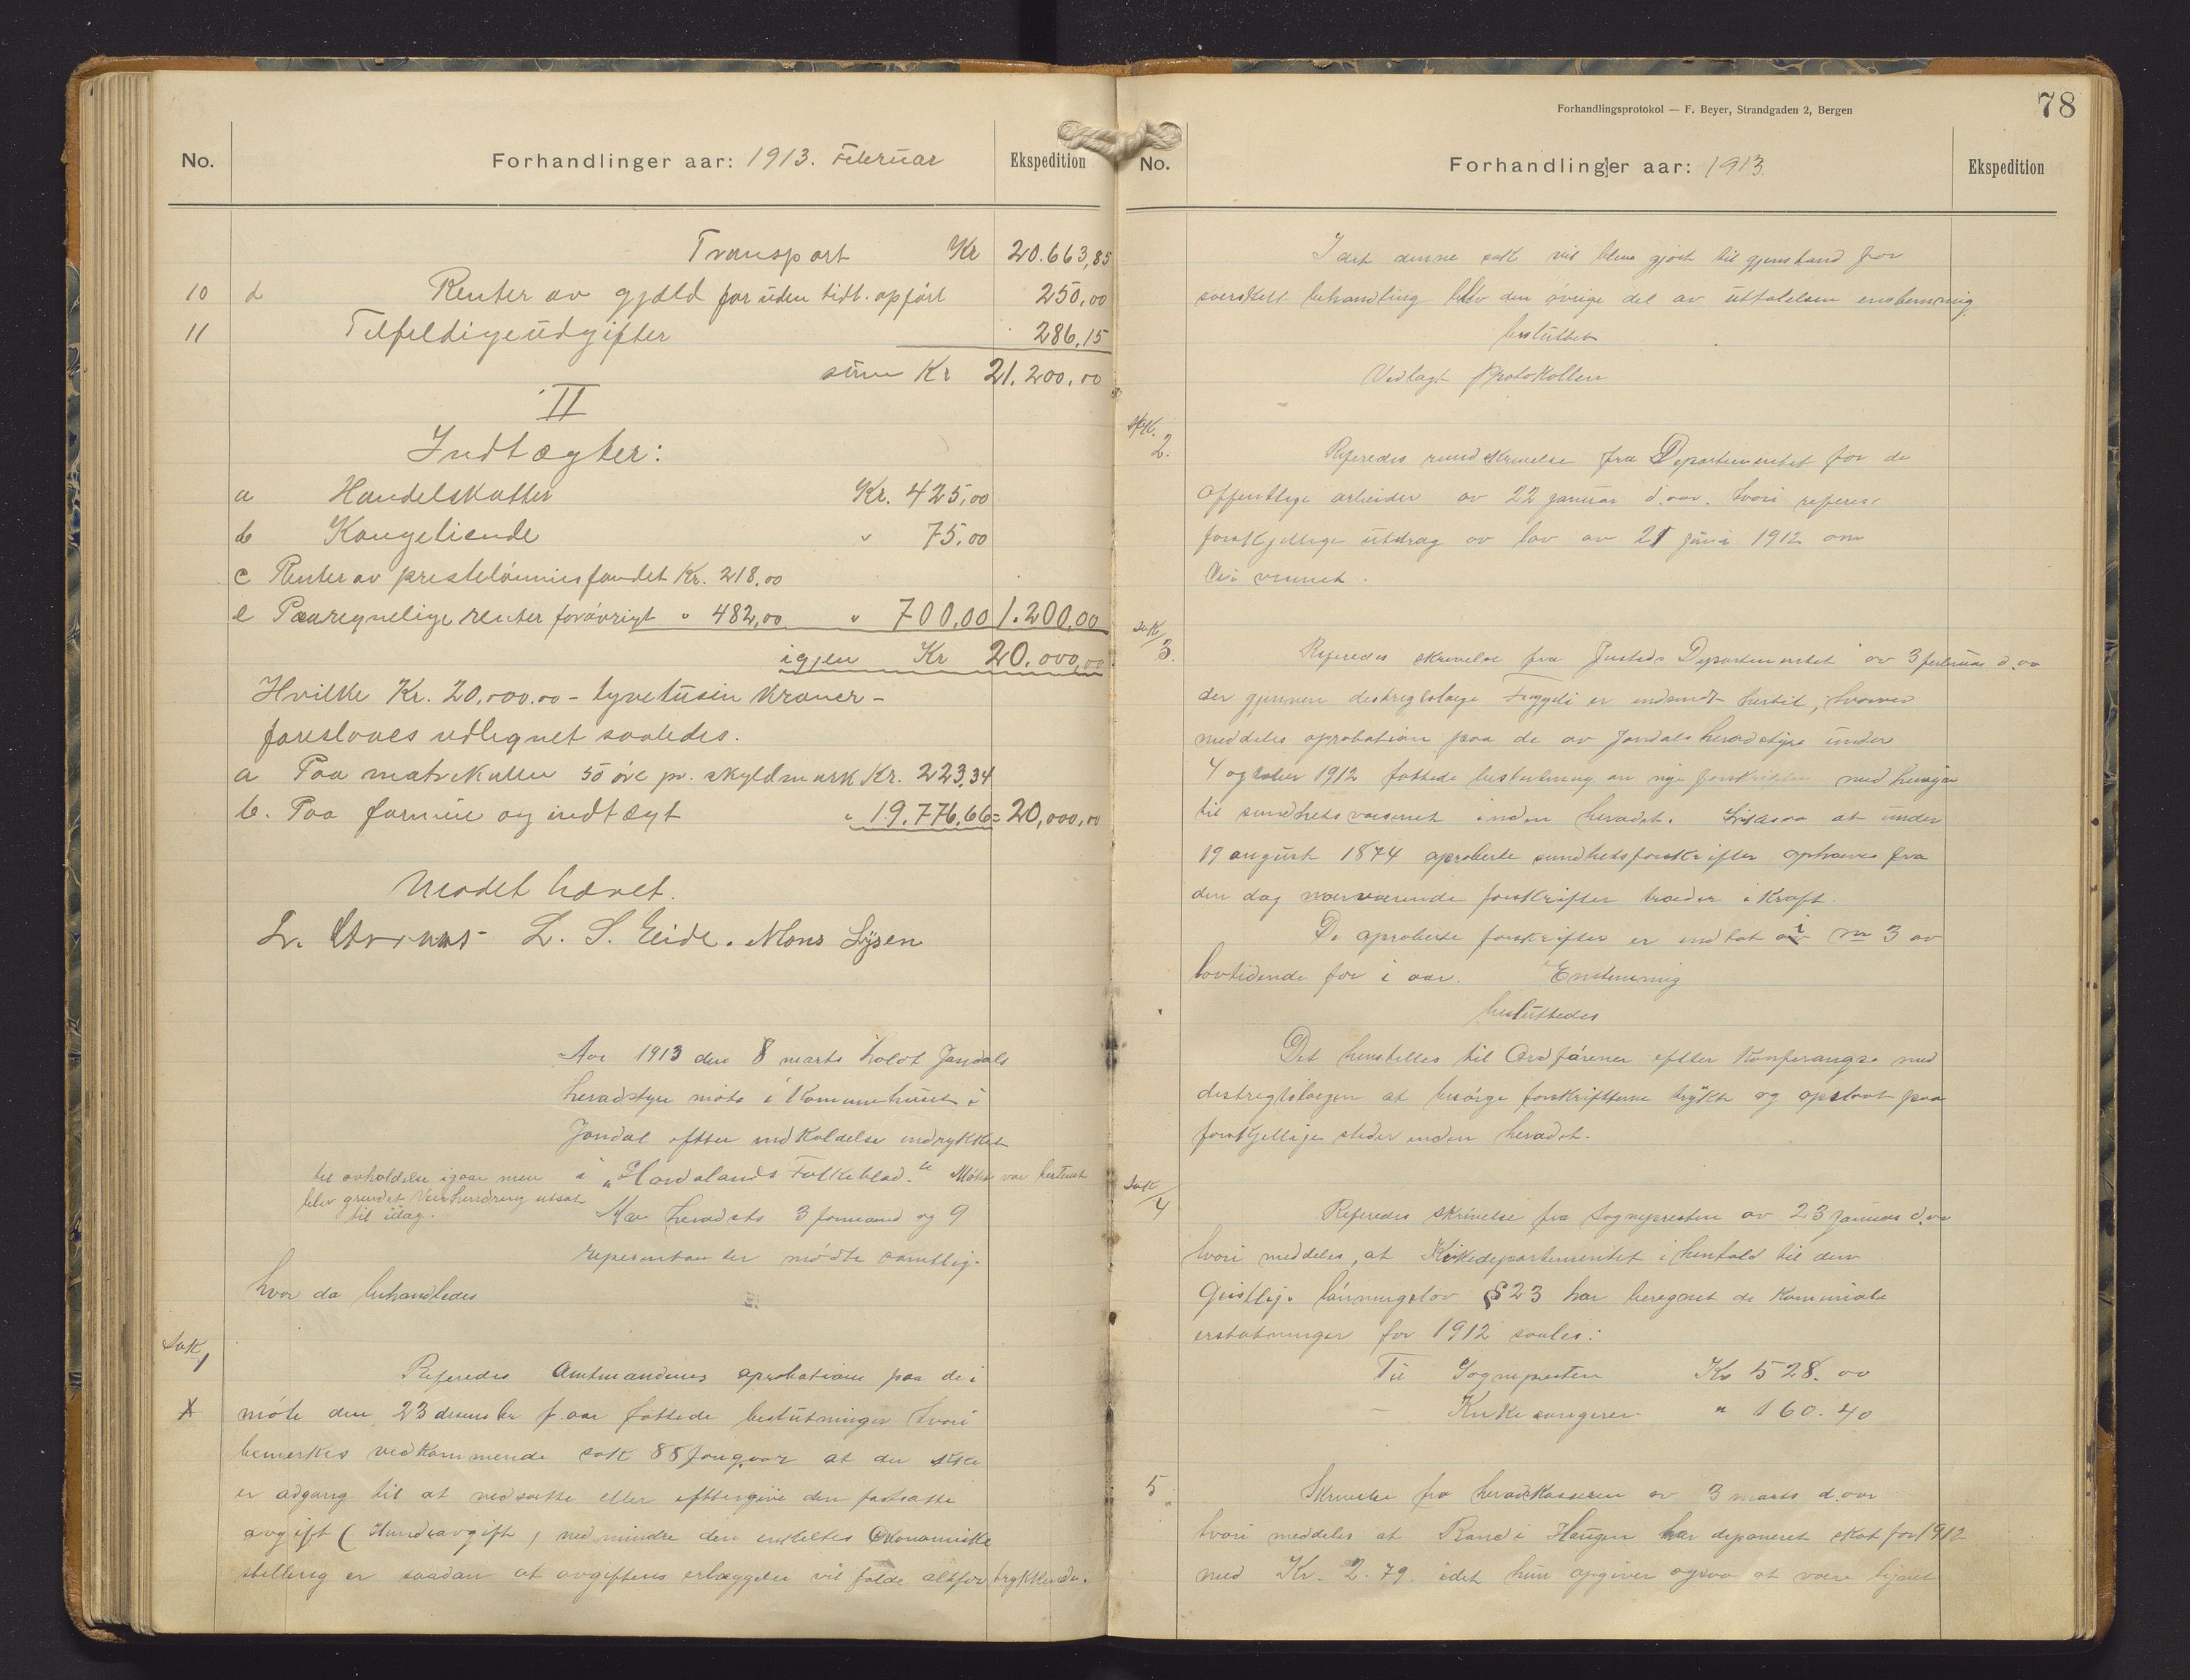 No.
Forhandlinger aar: 1913. Februar
Ekspedition
Transport Kr 20.663,85
10 d Renter av gjæld for uden tidl. opført 250,00
11 Tilfeldige udgifter 286,15
sum Kr 21.200,00
II
Indtægter:
a Handelskatter Kr. 425,00
b Kongetiende " 75,00
c Renter av prestelønnins fondet Kr. 218,00
e Paaregnelige renter forøvrigt " 482,00 " 700,00 1.200,00
igjen Kr 20.000,00
Hvilke Kr. 20,000.00 - tyvetusin kroner -
foreslaaes udlignet saaledes.
a Paa matrikulen 50 øre pr. skyldmark Kr. 223,34
b. Paa formue og indtægt " 19.776,66 = 20,000,00
Mødet hævet.
L. S. Eide. Mons Lysen
Aar 1913 den 8 marts holdt Jondals
heradstyre møte i Kommunehuset i
Jondal efter indkaldelse indrykket
i "Hordalands Folkeblad." Møtet var bestemt
til avholdelse igaar men
blev grundet veirhindring utsat
til idag.
Av heradets 3 formænd og 9
representanter mødte samtlige.
hvor da behandledes
Sak 1
Referedes Amtmandens aprobation paa de i
X møte den 23 desember f. aar fattede beslutninger hvori
bemerkes vedkommende sak 88 at der ikke
er adgang til at nedsætte eller eftergive den fastsatte
avgift (Hundeavgift) med mindre den enkeltes økonomiske
stilling er saadan at avgiftens erlæggelse vil falde altfor trykkende.
Forhandlingsprotokol — F. Beyer, Strandgaden 2, Bergen
78
No.
Forhandlinger aar: 1913.
Ekspedition
Idet denne sak vil blive gjort til gjenstand for
særskilt behandling blev den øvrige del av uttalelsen enstemmig
besluttet
Vedlagt protokollen
Sak. 2.
Referedes rundskrivelse fra Departementet for de
offentlige arbeider av 22 januar d. aar. hvori referes
forskjellige utdrag av lov av 21 juni 1912 om
Veivesenet.
Sak 3.
Referedes skrivelse fra Justeds Departementet av 3 februar d. aa
der gjennem destrigtslæge er indsendt hertil, hvorved
meddeles aprobation paa de av Jondals heradstyre under
4 ogtober 1912 fattede beslutning om nye forskrifter med hensyn
til sundhetsvæsenet inden heradet. Likesaa at under
19 august 1874 aproberte sundhetsforskrifter ophæves fra
den dag nærværende forskrifter træder i kraft.
De aproberte forskrifter er indtat i no 3 av
lovtidende for i aar. Enstemmig
besluttedes
Det henstilles til Ordførerer efter konferangse med
destrigtslægen at besørge forskrifterne trykt og opslaat paa
forskjellige steder inden heradet.
Sak 4
Referedes skrivelse fra Sognepresten av 23 januar d. aa
hvori meddeles, at Kirkedepartementet i henhold til den
Geistlige lønningslov § 23 har beregnet de Kommunale
erstatninger for 1912 saales:
Til Sognepresten Kr 528.00
- Kirkesangeren " 160.40
5
Skrivelse fra heradskasseren av 3 marts d. aar
hvori meddeles at Randi Haugen har deponeret skat for 1912
med Kr. 2.79 idet hun opgiver ogsaa at være lignet